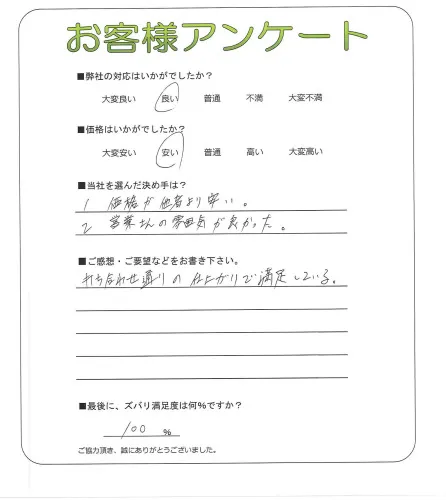 お客様アンケート
■弊社の対応はいかがでしたか？
大変良い 良い 普通 不満 大変不満
■価格はいかがでしたか？
大変安い 安い 普通 高い 大変高い
■当社を選んだ決め手は？
1 価格が他者より安い。
2 営業さんの雰囲気が良かった。
■ご感想・ご要望などをお書き下さい。
打ち合わせ通りの仕上がりで満足している。
■最後に、ズバリ満足度は何%ですか？
100 %
ご協力頂き、誠にありがとうございました。